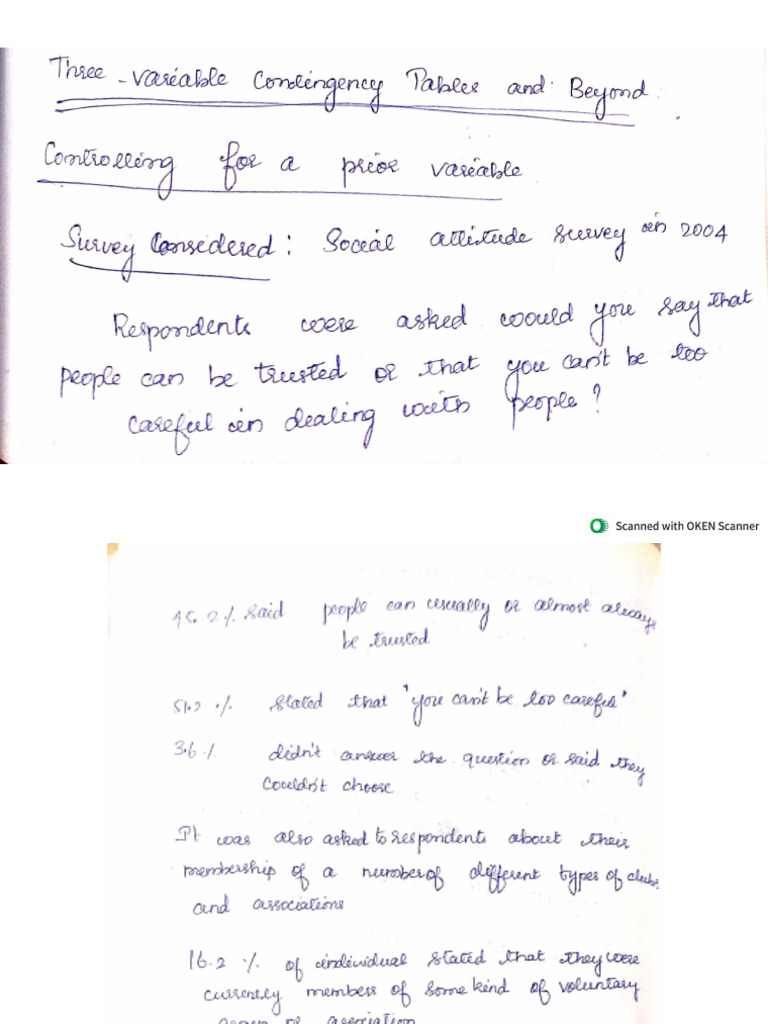 Three-variable Contingency Tables and Beyond
Controlling for a prior variable
Survey Considered: Social attitude survey in 2004
Respondents were asked would you say that
people can be trusted or that you can't be too
careful in dealing with people?
Scanned with OKEN Scanner
45.2% said people can usually or almost always
be trusted
51.2% stated that 'you can't be too careful'
3.6% didn't answer the question or said they
couldn't choose
It was also asked to respondents about their
membership of a number of different types of clubs
and associations
16.2% of individual stated that they were
currently members of some kind of voluntary
or association